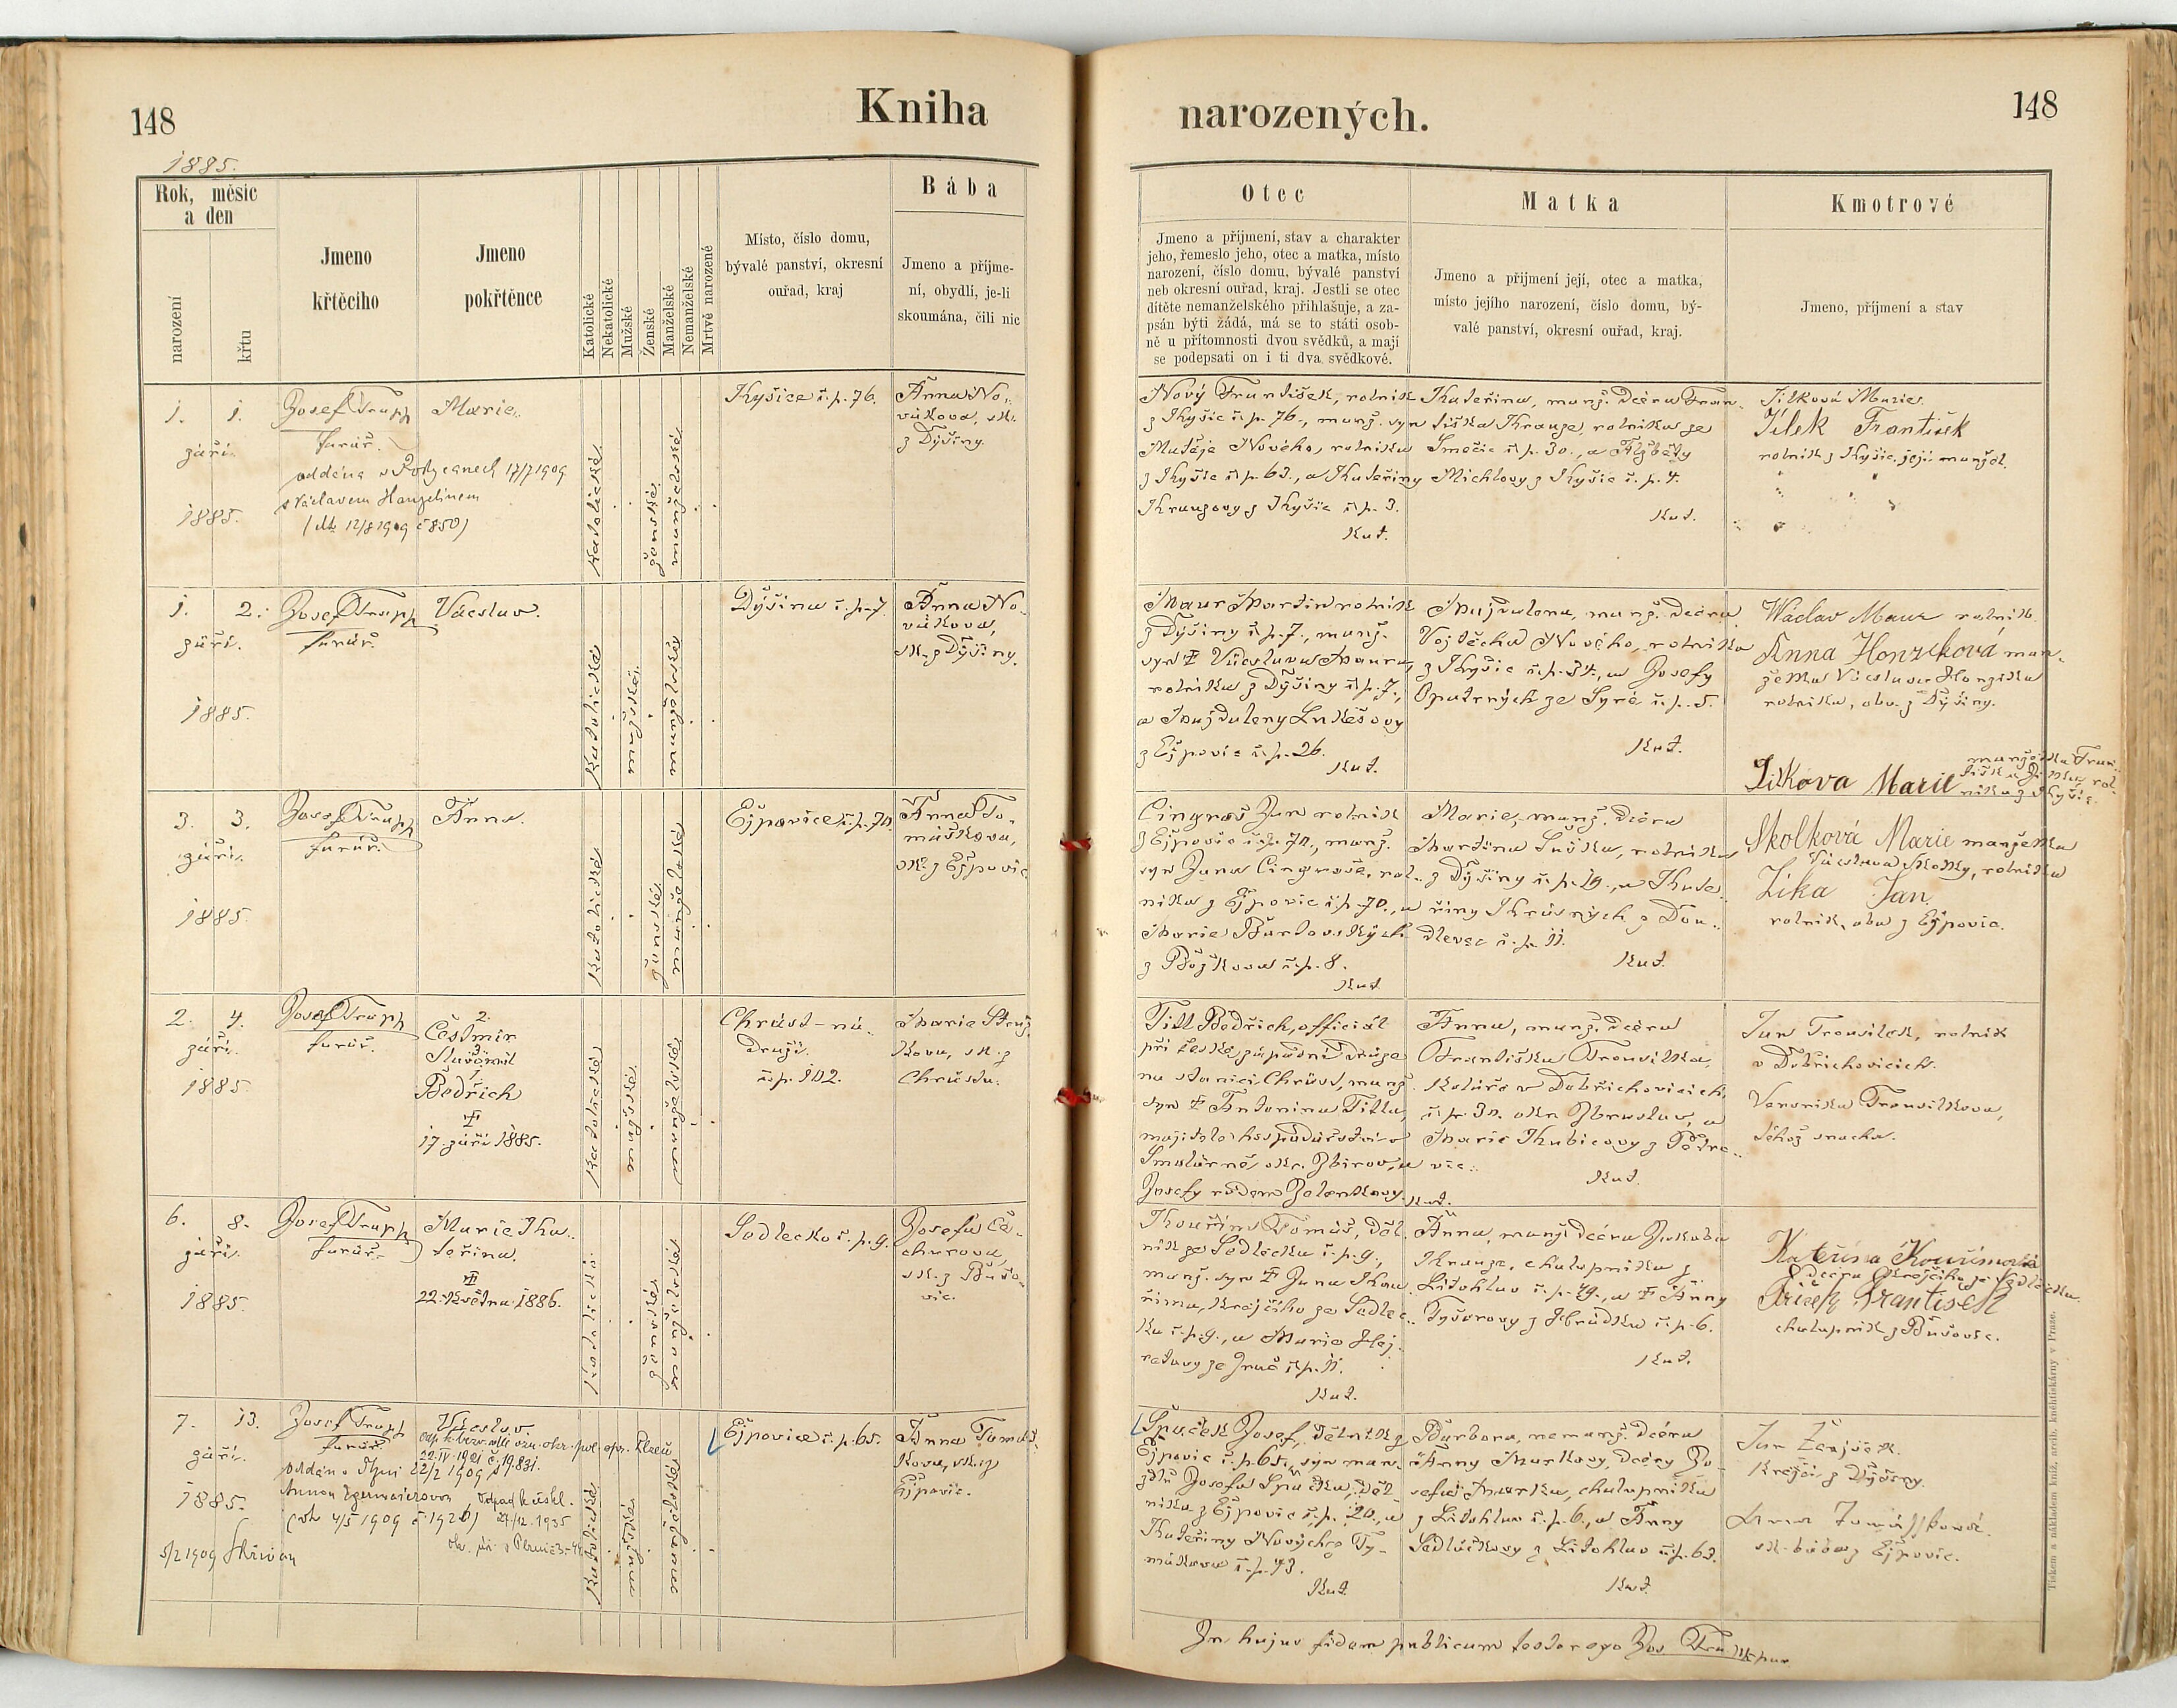 148
Kniha
narozených.
148
1885.
Rok, měsíc
a den
narození
křtu
Jmeno
křtěcího
Jmeno
pokřtěnce
Katolické
Nekatolické
Mužské
Ženské
Manželské
Nemanželské
Mrtvě narozené
Místo, číslo domu,
bývalé panství, okresní
ouřad, kraj
Bába
Jmeno a příjme-
ní, obydlí, je-li
skoumána, čili nic
Otec
Jmeno a příjmení, stav a charakter
jeho, řemeslo jeho, otec a matka, místo
narození, číslo domu, bývalé panství
neb okresní ouřad, kraj. Jestli se otec
dítěte nemanželského přihlašuje, a za-
psán býti žádá, má se to státi osob-
ně u přítomnosti dvou svědků, a mají
se podepsati on i ti dva svědkové.
Matka
Jmeno a přijmení její, otec a matka,
místo jejího narození, číslo domu, bý-
valé panství, okresní ouřad, kraj.
Kmotrové
Jmeno, příjmení a stav
1. 1.
září
1885.
Josef Trapp
farář.
Marie.
oddána v Rokycanech 17/7 1909
s Václavem
katolické
ženské
manželské
Kyšice č. p. 76.
Anna No-
váková, zk.
z Dýšiny.
Nový František, rolník
z Kyšic č. p. 76., manž. syn
Matěje Nového, rolníka
z Kyšic č. p. 63., a Kateřiny
Krauzovy z Kyšic č. p. 3.
Kat.
Kateřina, manž. dcera Fran-
tiška Krauze, rolníka ze
Smečic č. p. 30., a Alžběty
Michlovy z Kyšic č. p. 4.
Kat.
Jílková Marie.
Jílek František
rolník z Kyšic, její manžel.
1. 2.
září.
1885.
Josef Trapp
farář.
Václav.
katolické
mužské
manželské
Dýšina č. p. 7.
Anna No-
váková,
zk. z Dýšiny.
Maur Martin rolník
z Dýšiny č. p. 7., manž.
syn † Václava Maura,
rolníka z Dýšiny č. p. 7.,
a Majdaleny Lukešovy
z Ejpovic č. p. 26.
Kat.
Majdalena, manž. dcera
Vojtěcha Nového, rolníka
z Kyšic č. p. 34., a Josefy
Opatrných ze Syré č. p. 5.
Kat.
Wáclav Maur rolník.
Anna Honzíková man-
želka Václava Honzíka
rolníka, oba z Dýšiny.
3. 3.
září.
1885.
Josef Trapp
farář.
Anna.
katolické
ženské
manželské
Ejpovice č. p. 70.
Anna To-
mášková,
zk. z Ejpovic
Cingroš Jan rolník
z Ejpovic č. p. 70., manž.
syn Jana Cingroše, rol-
níka z Ejpovic č. p. 70., a
Marie Bartovských
z Božkova č. p. 8.
Kat.
Marie, manž. dcera
Martina Sučka, rolníka
z Dýšiny č. p. 19., a Kate-
řiny Krásných z Dou-
dlevec č. p. 11.
Kat.
Jílkova Marie manželka Fran-
tiška Jílka, rol-
níka z Kyšic.
Skolková Marie manželka
Václava Skolky, rolníka
Zíka Jan
rolník, oba z Ejpovic.
2. 4.
září.
1885.
Josef Trapp
farář.
2.
Čestmír
3.
1
Bedřich
†
17. září 1885.
katolické
mužské
manželské
Chrást-ná-
draží.
č. p. 102.
Marie
zk. z
Chrástu.
Titl Bedřich, officiál
při české západní dráze
na stanici Chrást, manž.
syn † Antonína Titla,
majitele hospodářství v
okr. Zbirov, a
Josefy rodem Zelenkovy.
Kat.
Anna, manž. dcera
Františka Trousilka,
koláře v Dobřichovicích,
č. p. 30. okr. Zbraslav, a
Marie Kubicovy z
Kat.
Jan Trousilek, rolník
v Dobřichovicích.
Veronika Trousilkova,
téhož snacha.
6. 8.
září.
1885.
Josef Trapp
farář.
Marie Ka-
teřina.
†
22. května 1886.
katolické
ženské
manželské
Sedlecko č. p. 9.
Josefa
zk. z
Kouřim Tomáš, děl-
ník ze Sedlecka č. p. 9.,
manž. syn † Jana Kou-
řima, krejčího ze Sedlec-
ka č. p. 9., a Marie
č. p. 11.
Kat.
Anna, manž. dcera Jakuba
Krauze, chalupníka z
Litohlav č. p. 49., a † Anny
z Hrádku č. p. 6.
Kat.
Kateřina Kouřimová
dcera krejčího ze Sedlecka.
František
chalupník z
7. 13.
září.
1885.
Josef Trapp
farář
Václav.
22. IV. 1921 č. 19.831.
oddán v Plzni 22/2 1909 s
Annou
(vk 4/5 1909 č. 1926)
27/12. 1935
5/2 1909
katolické
mužské
manželské
Ejpovice č. p. 65.
Anna Tomáš-
kova, zk. z
Ejpovic.
Špaček Josef, dělník z
Ejpovic č. p. 65., syn man-
želů Josefa Špačka, děl-
níka z Ejpovic č. p. 20., a
Kateřiny Nových z Ty-
mákova č. p. 73.
Kat.
Barbora, nemanž. dcera
Anny Markovy, dcery Jo-
sefa Marka, chalupníka
z Litohlav č. p. 6., a Anny
Sedláčkovy z Litohlav č. p. 63.
Kat.
Jan
krejčí z Dýšiny.
Anna Tomášková.
zk. bába z Ejpovic.
In hujus fidem publicam testor ego Jos. Trapp
Tiskem a nákladem kníž. arcib. knihtiskárny v Praze.